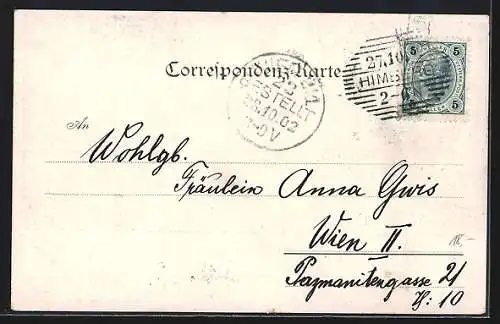 5 5
27.10
HIMB
2-
5 5
Correspondenz-Karte
WIEN
BESTELLT
28.10.02
An
Wohlgb.
Fräulein Anna Gwis
Wien II.
Pazmanitengasse 21
T: 10